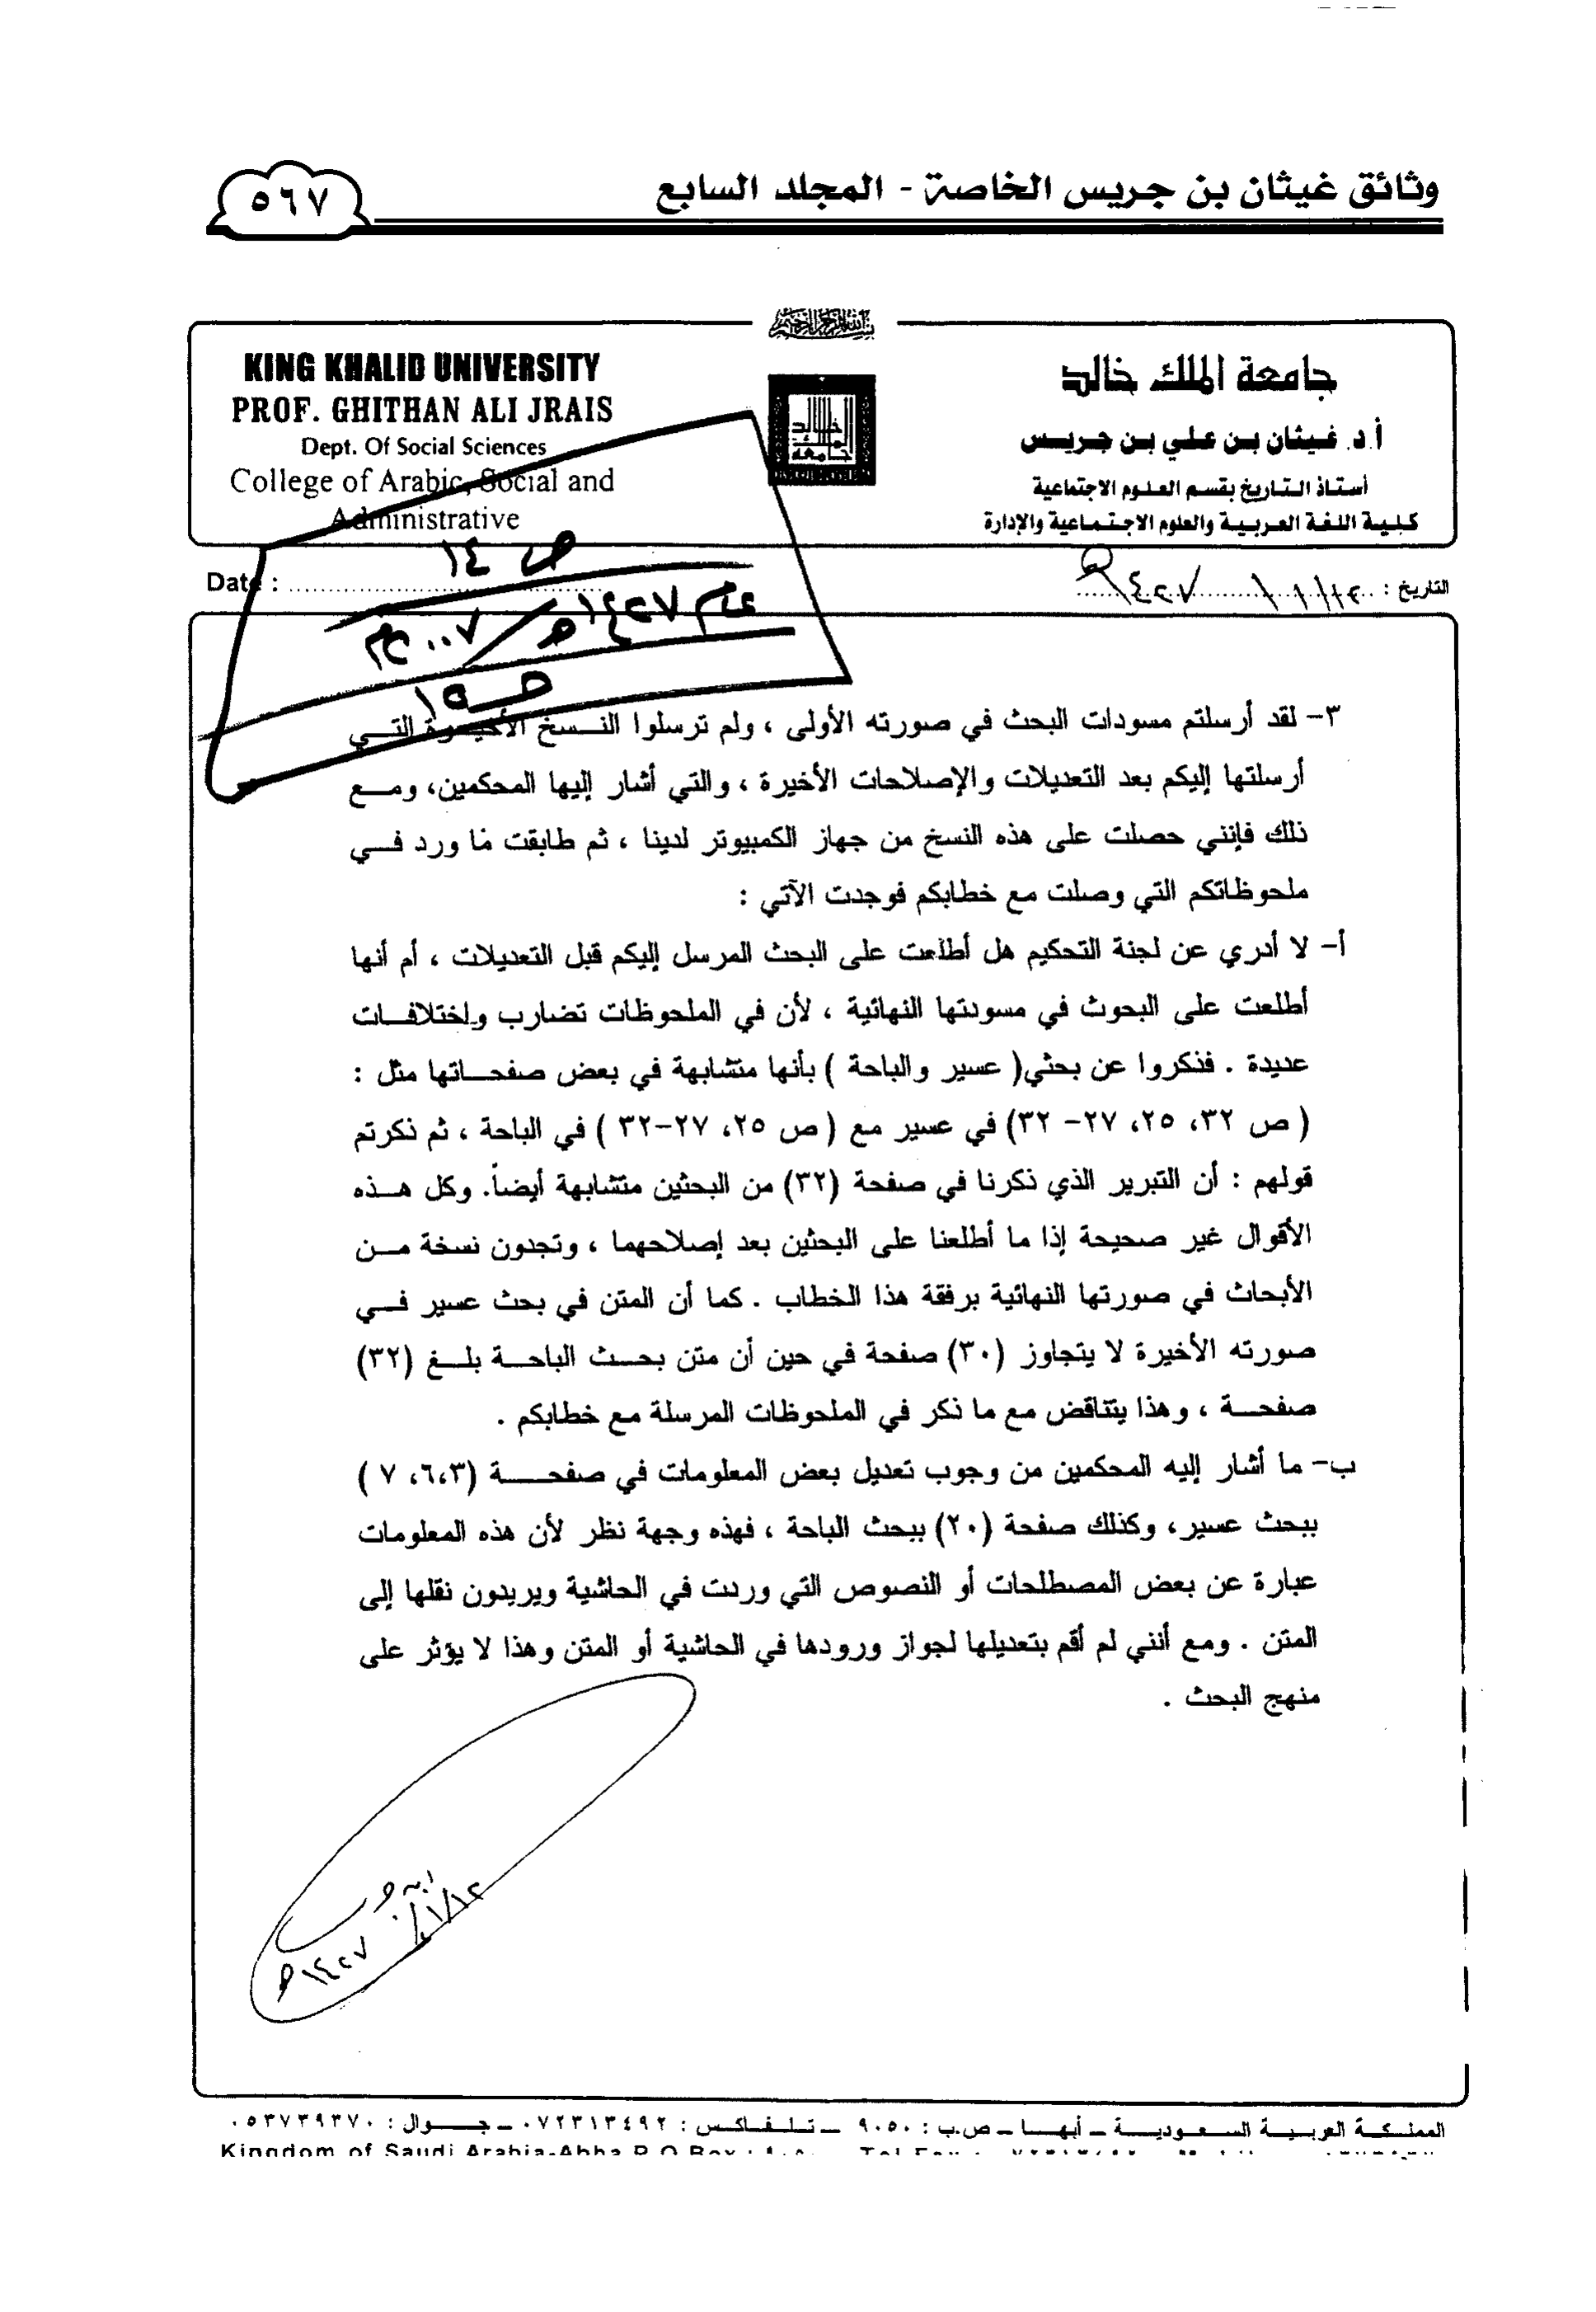 وثائق غيثان بن جريس الخاصة - المجلد السابع
٥٦٧
جامعة الملك خالد
أ.د. غيثان بن علي بن جريس
أستاذ التاريخ بقسم العلوم الاجتماعية
كلية اللغة العربية والعلوم الاجتماعية والإدارة
KING KHALID UNIVERSITY
PROF. GHITHAN ALI JRAIS
Dept. Of Social Sciences
College of Arabic, Social and
Administrative
التاريخ : ١٢/١/١٤٢٧هـ
Date :
ص ١٤
عام ١٤٢٧هـ / ٢٠٠٧م
ص ١٥
٣- لقد أرسلتم مسودات البحث في صورته الأولى ، ولم ترسلوا النسخ الأخيرة التي
أرسلتها إليكم بعد التعديلات والإصلاحات الأخيرة ، والتي أشار إليها المحكمين، ومع
ذلك فإنني حصلت على هذه النسخ من جهاز الكمبيوتر لدينا ، ثم طابقت ما ورد في
ملحوظاتكم التي وصلت مع خطابكم فوجدت الآتي :
أ- لا أدري عن لجنة التحكيم هل أطلعت على البحث المرسل إليكم قبل التعديلات ، أم أنها
أطلعت على البحوث في مسودتها النهائية ، لأن في الملحوظات تضارب واختلافات
عديدة . فذكروا عن بحثي( عسير والباحة ) بأنها متشابهة في بعض صفحاتها مثل :
( ص ٣٢، ٢٥، ٢٧- ٣٢) في عسير مع ( ص ٢٥، ٢٧-٣٢ ) في الباحة ، ثم ذكرتم
قولهم : أن التبرير الذي ذكرنا في صفحة (٣٢) من البحثين متشابهة أيضاً. وكل هذه
الأقوال غير صحيحة إذا ما أطلعنا على البحثين بعد إصلاحهما ، وتجدون نسخة من
الأبحاث في صورتها النهائية برفقة هذا الخطاب . كما أن المتن في بحث عسير في
صورته الأخيرة لا يتجاوز (٣٠) صفحة في حين أن متن بحث الباحة بلغ (٣٢)
صفحة ، وهذا يتناقض مع ما ذكر في الملحوظات المرسلة مع خطابكم .
ب- ما أشار إليه المحكمين من وجوب تعديل بعض المعلومات في صفحة (٣،٦، ٧ )
ببحث عسير، وكذلك صفحة (٢٠) ببحث الباحة ، فهذه وجهة نظر لأن هذه المعلومات
عبارة عن بعض المصطلحات أو النصوص التي وردت في الحاشية ويريدون نقلها إلى
المتن . ومع أنني لم أقم بتعديلها لجواز ورودها في الحاشية أو المتن وهذا لا يؤثر على
منهج البحث .
١٢/١/١٤٢٧هـ
المملكة العربية السعودية – أبها – ص.ب : ٩٠٥٠ – تلفاكس : ٠٧٢٣١٣٤٩٢ – جوال : ٠٥٣٧٣٩٣٧٠
Kingdom of Saudi Arabia-Abha P.O.Box : ٩٠٥٠